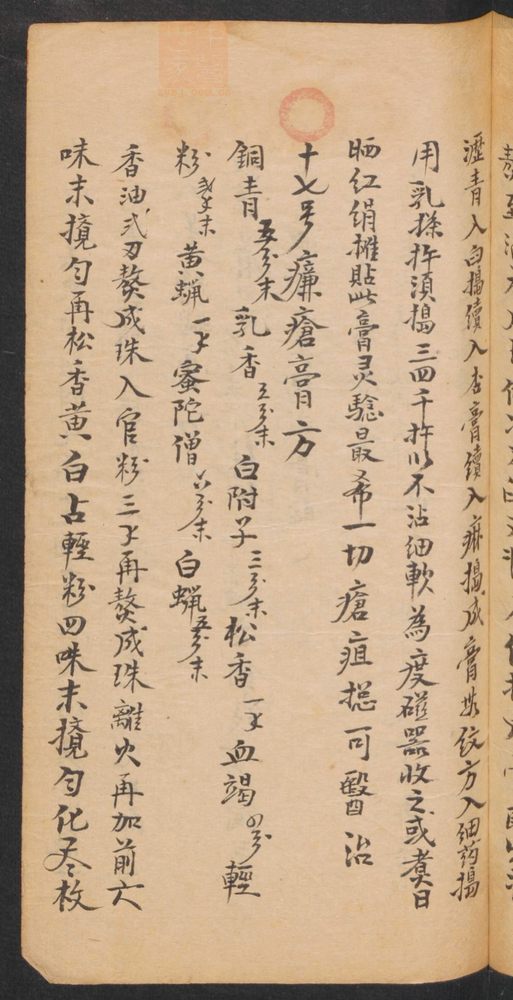 瀝青入臼搗續入杏膏續入麻搗成膏無紋方入細药搗
用乳搽杵須搗三四千杵以不沾细軟為度磁器收之或煮日
晒红绢攤貼此膏灵驗最希一切瘡疽捴可醫治
十七号臁瘡膏方
銅青五分末乳香五分末白附子三分末松香一才血竭四分輕
粉末黄蝋一才蜜陀僧六分末白蝋五分末
香油弍刄熬成珠入官粉三才再熬成珠離火再加前六
味末攪匀再松香黄白占輕粉四味末攪匀化尽枚